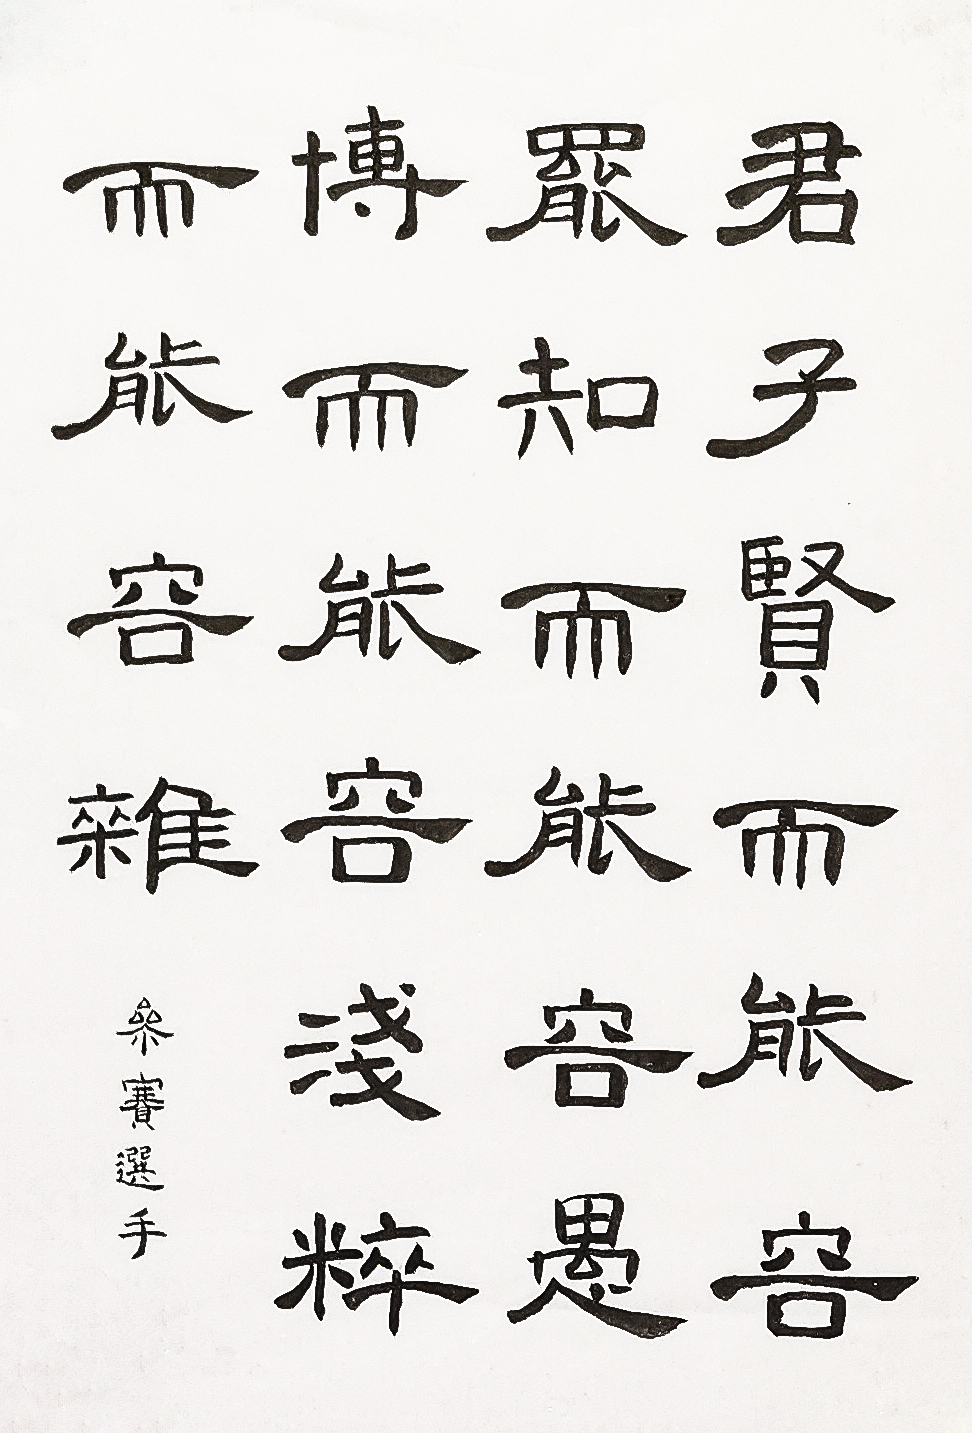 君子賢而能容
罷知而能容愚
博而能容淺粹
而能容雜
參賽選手